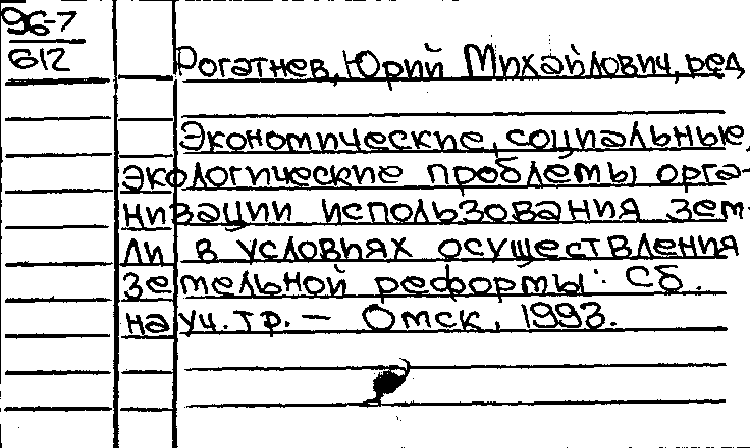 96-7
612
Рогатнев, Юрий Михайлович, ред.
Экономические, социальные,
экологические проблемы орга-
низации использования зем-
ли в условиях осуществления
земельной реформы: Сб.
науч. тр. — Омск, 1993.